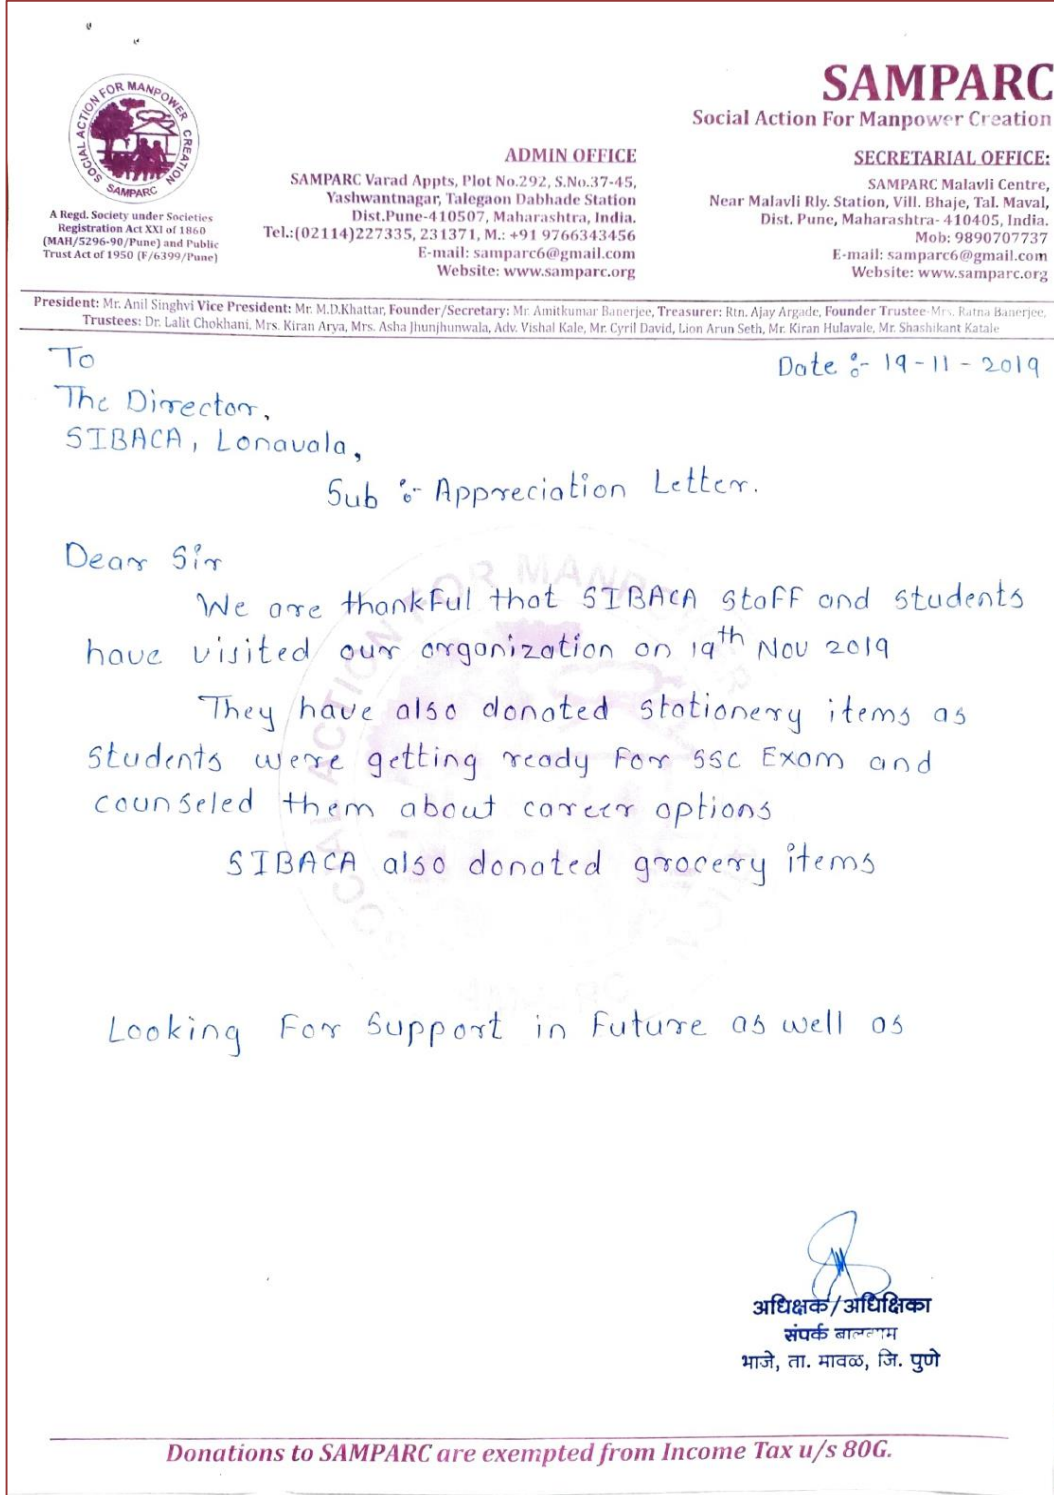 SOCIAL ACTION FOR MANPOWER CREATION
SAMPARC
A Regd. Society under Societies
Registration Act XXI of 1860
(MAH/5296-90/Pune) and Public
Trust Act of 1950 (F/6399/Pune)
ADMIN OFFICE
SAMPARC Varad Appts, Plot No.292, S.No.37-45,
Yashwantnagar, Talegaon Dabhade Station
Dist.Pune-410507, Maharashtra, India.
Tel.:(02114)227335, 231371, M.: +91 9766343456
E-mail: samparc6@gmail.com
Website: www.samparc.org
SAMPARC
Social Action For Manpower Creation
SECRETARIAL OFFICE:
SAMPARC Malavli Centre,
Near Malavli Rly. Station, Vill. Bhaje, Tal. Maval,
Dist. Pune, Maharashtra- 410405, India.
Mob: 9890707737
E-mail: samparc6@gmail.com
Website: www.samparc.org
President: Mr. Anil Singhvi Vice President: Mr. M.D.Khattar, Founder/Secretary: Mr. Amitkumar Banerjee, Treasurer: Rtn. Ajay Argade, Founder Trustee-Mrs. Ratna Banerjee,
Trustees: Dr. Lalit Chokhani, Mrs. Kiran Arya, Mrs. Asha Jhunjhunwala, Adv. Vishal Kale, Mr. Cyril David, Lion Arun Seth, Mr. Kiran Hulavale, Mr. Shashikant Katale
To
Date :- 19-11-2019
The Director,
SIBACA, Lonavala,
Sub :- Appreciation Letter.
Dear Sir
We are thankful that SIBACA staff and students
have visited our organization on 19th Nov 2019
They have also donated stationery items as
students were getting ready for SSC Exam and
counseled them about career options
SIBACA also donated grocery items
Looking For Support in Future as well as
अधिक्षक/अधिक्षिका
संपर्क
भाजे, ता. मावळ, जि. पुणे
Donations to SAMPARC are exempted from Income Tax u/s 80G.